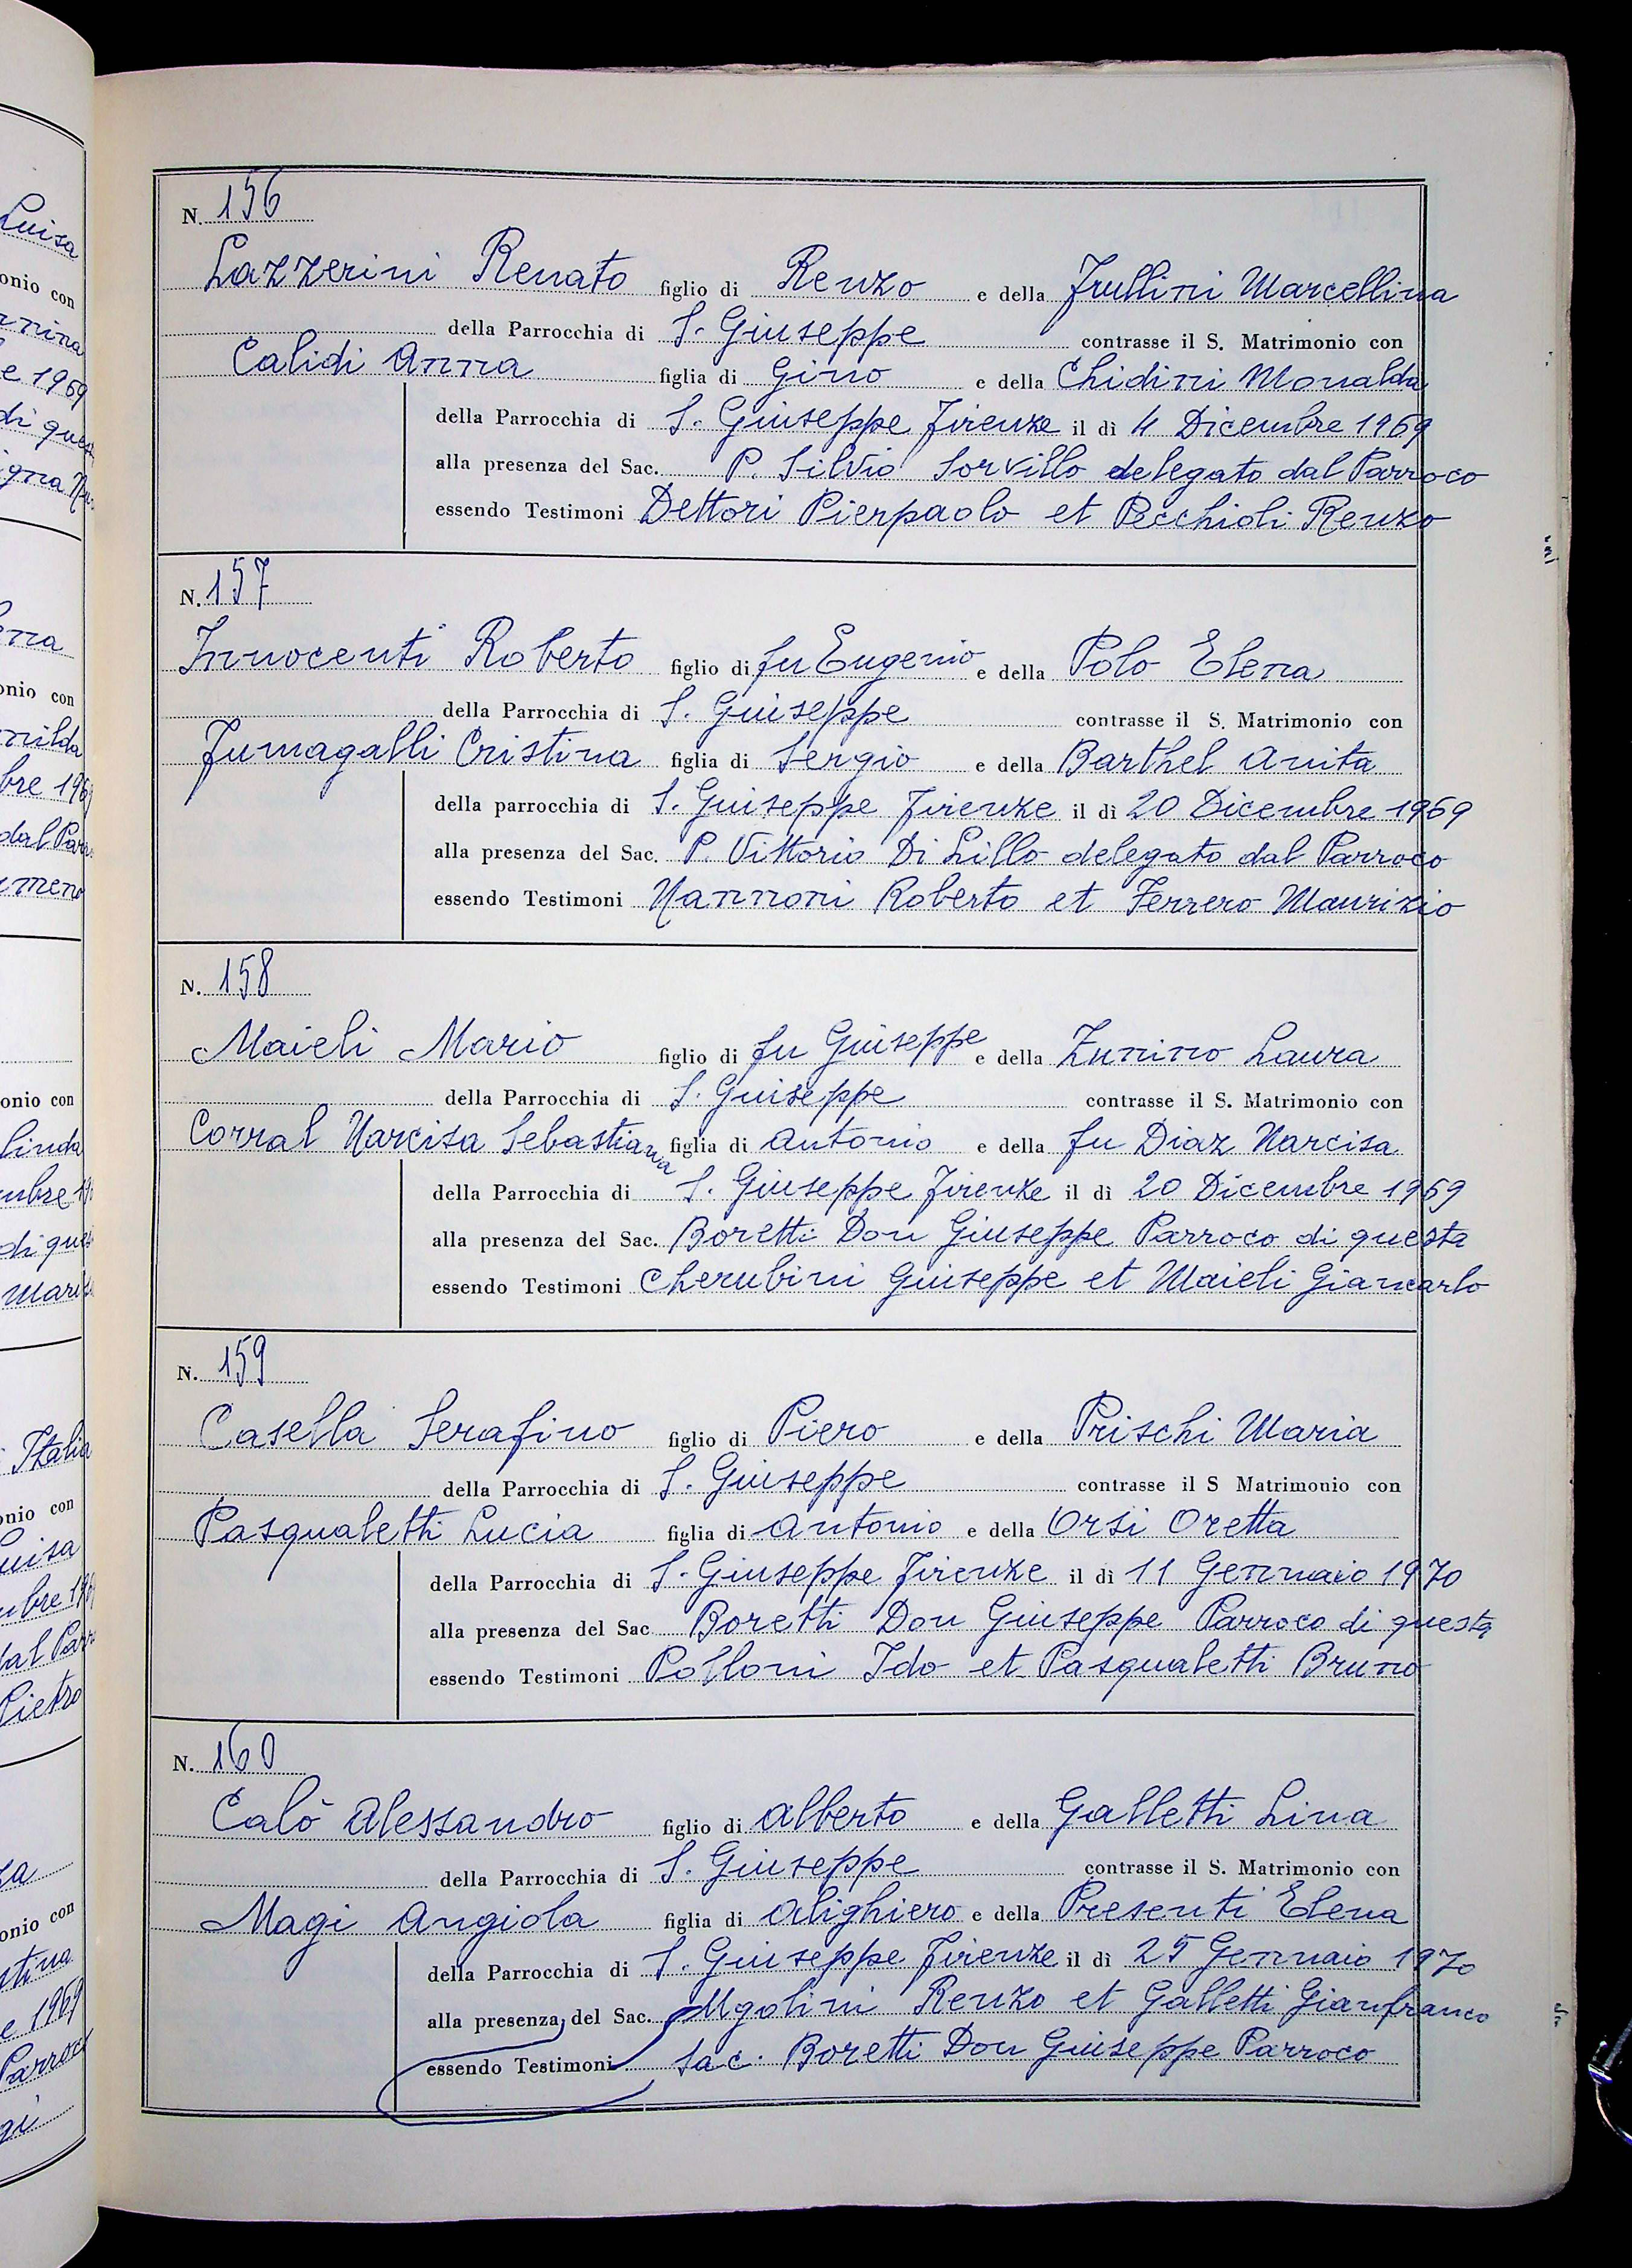 N. 156
Lazzerini Renato figlio di Renzo e della Frullini Marcellina
della Parrocchia di S. Giuseppe contrasse il S. Matrimonio con
Calidi Anna figlia di Gino e della Chidini Monalda
della Parrocchia di S. Giuseppe Firenze il dì 4 Dicembre 1969
alla presenza del Sac. P. Silvio Sorvillo delegato dal Parroco
essendo Testimoni Dettori Pierpaolo et Pecchioli Renzo
N. 157
Innocenti Roberto figlio di fu Eugenio e della Polo Elena
della Parrocchia di S. Giuseppe contrasse il S. Matrimonio con
Fumagalli Cristina figlia di Sergio e della Barthel Anita
della parrocchia di S. Giuseppe Firenze il dì 20 Dicembre 1969
alla presenza del Sac. P. Vittorio Di Lillo delegato dal Parroco
essendo Testimoni Nannoni Roberto et Ferrero Maurizio
N. 158
Maieli Mario figlio di fu Giuseppe e della Zunino Laura
della Parrocchia di S. Giuseppe contrasse il S. Matrimonio con
Corral Narcisa Sebastiana figlia di Antonio e della fu Diaz Narcisa
della Parrocchia di S. Giuseppe Firenze il dì 20 Dicembre 1969
alla presenza del Sac. Boretti Don Giuseppe Parroco di questa
essendo Testimoni Cherubini Giuseppe et Maieli Giancarlo
N. 159
Casella Serafino figlio di Piero e della Prischi Maria
della Parrocchia di S. Giuseppe contrasse il S Matrimonio con
Pasqualetti Lucia figlia di Antonio e della Orsi Oretta
della Parrocchia di S. Giuseppe Firenze il dì 11 Gennaio 1970
alla presenza del Sac Boretti Don Giuseppe Parroco di questa
essendo Testimoni Polloni Ido et Pasqualetti Bruno
N. 160
Calò Alessandro figlio di Alberto e della Galletti Lina
della Parrocchia di S. Giuseppe contrasse il S. Matrimonio con
Magi Angiola figlia di Alighiero e della Presenti Elena
della Parrocchia di S. Giuseppe Firenze il dì 25 Gennaio 1970
alla presenza del Sac. Ugolini Renzo et Galletti Gianfranco
essendo Testimoni Sac. Boretti Don Giuseppe Parroco